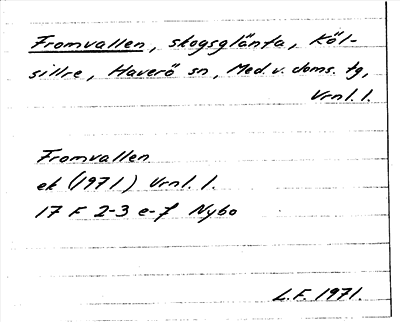 Fromvallen, skogsglänta, Köl-
sillre, Haverö sn, Med. v. doms. tg,
Vrnl. l.
Fromvallen
ek (1971) Vrnl. l.
17 F 2-3 e-f Nybo
L.F. 1971.